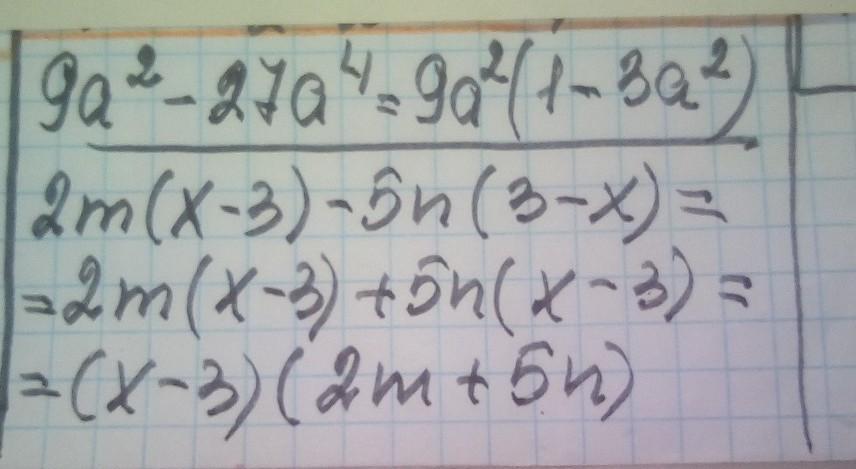 9a² - 27a⁴ = 9a²(1 - 3a²)
2m(x-3) - 5n(3-x) =
= 2m(x-3) + 5n(x-3) =
= (x-3)(2m + 5n)